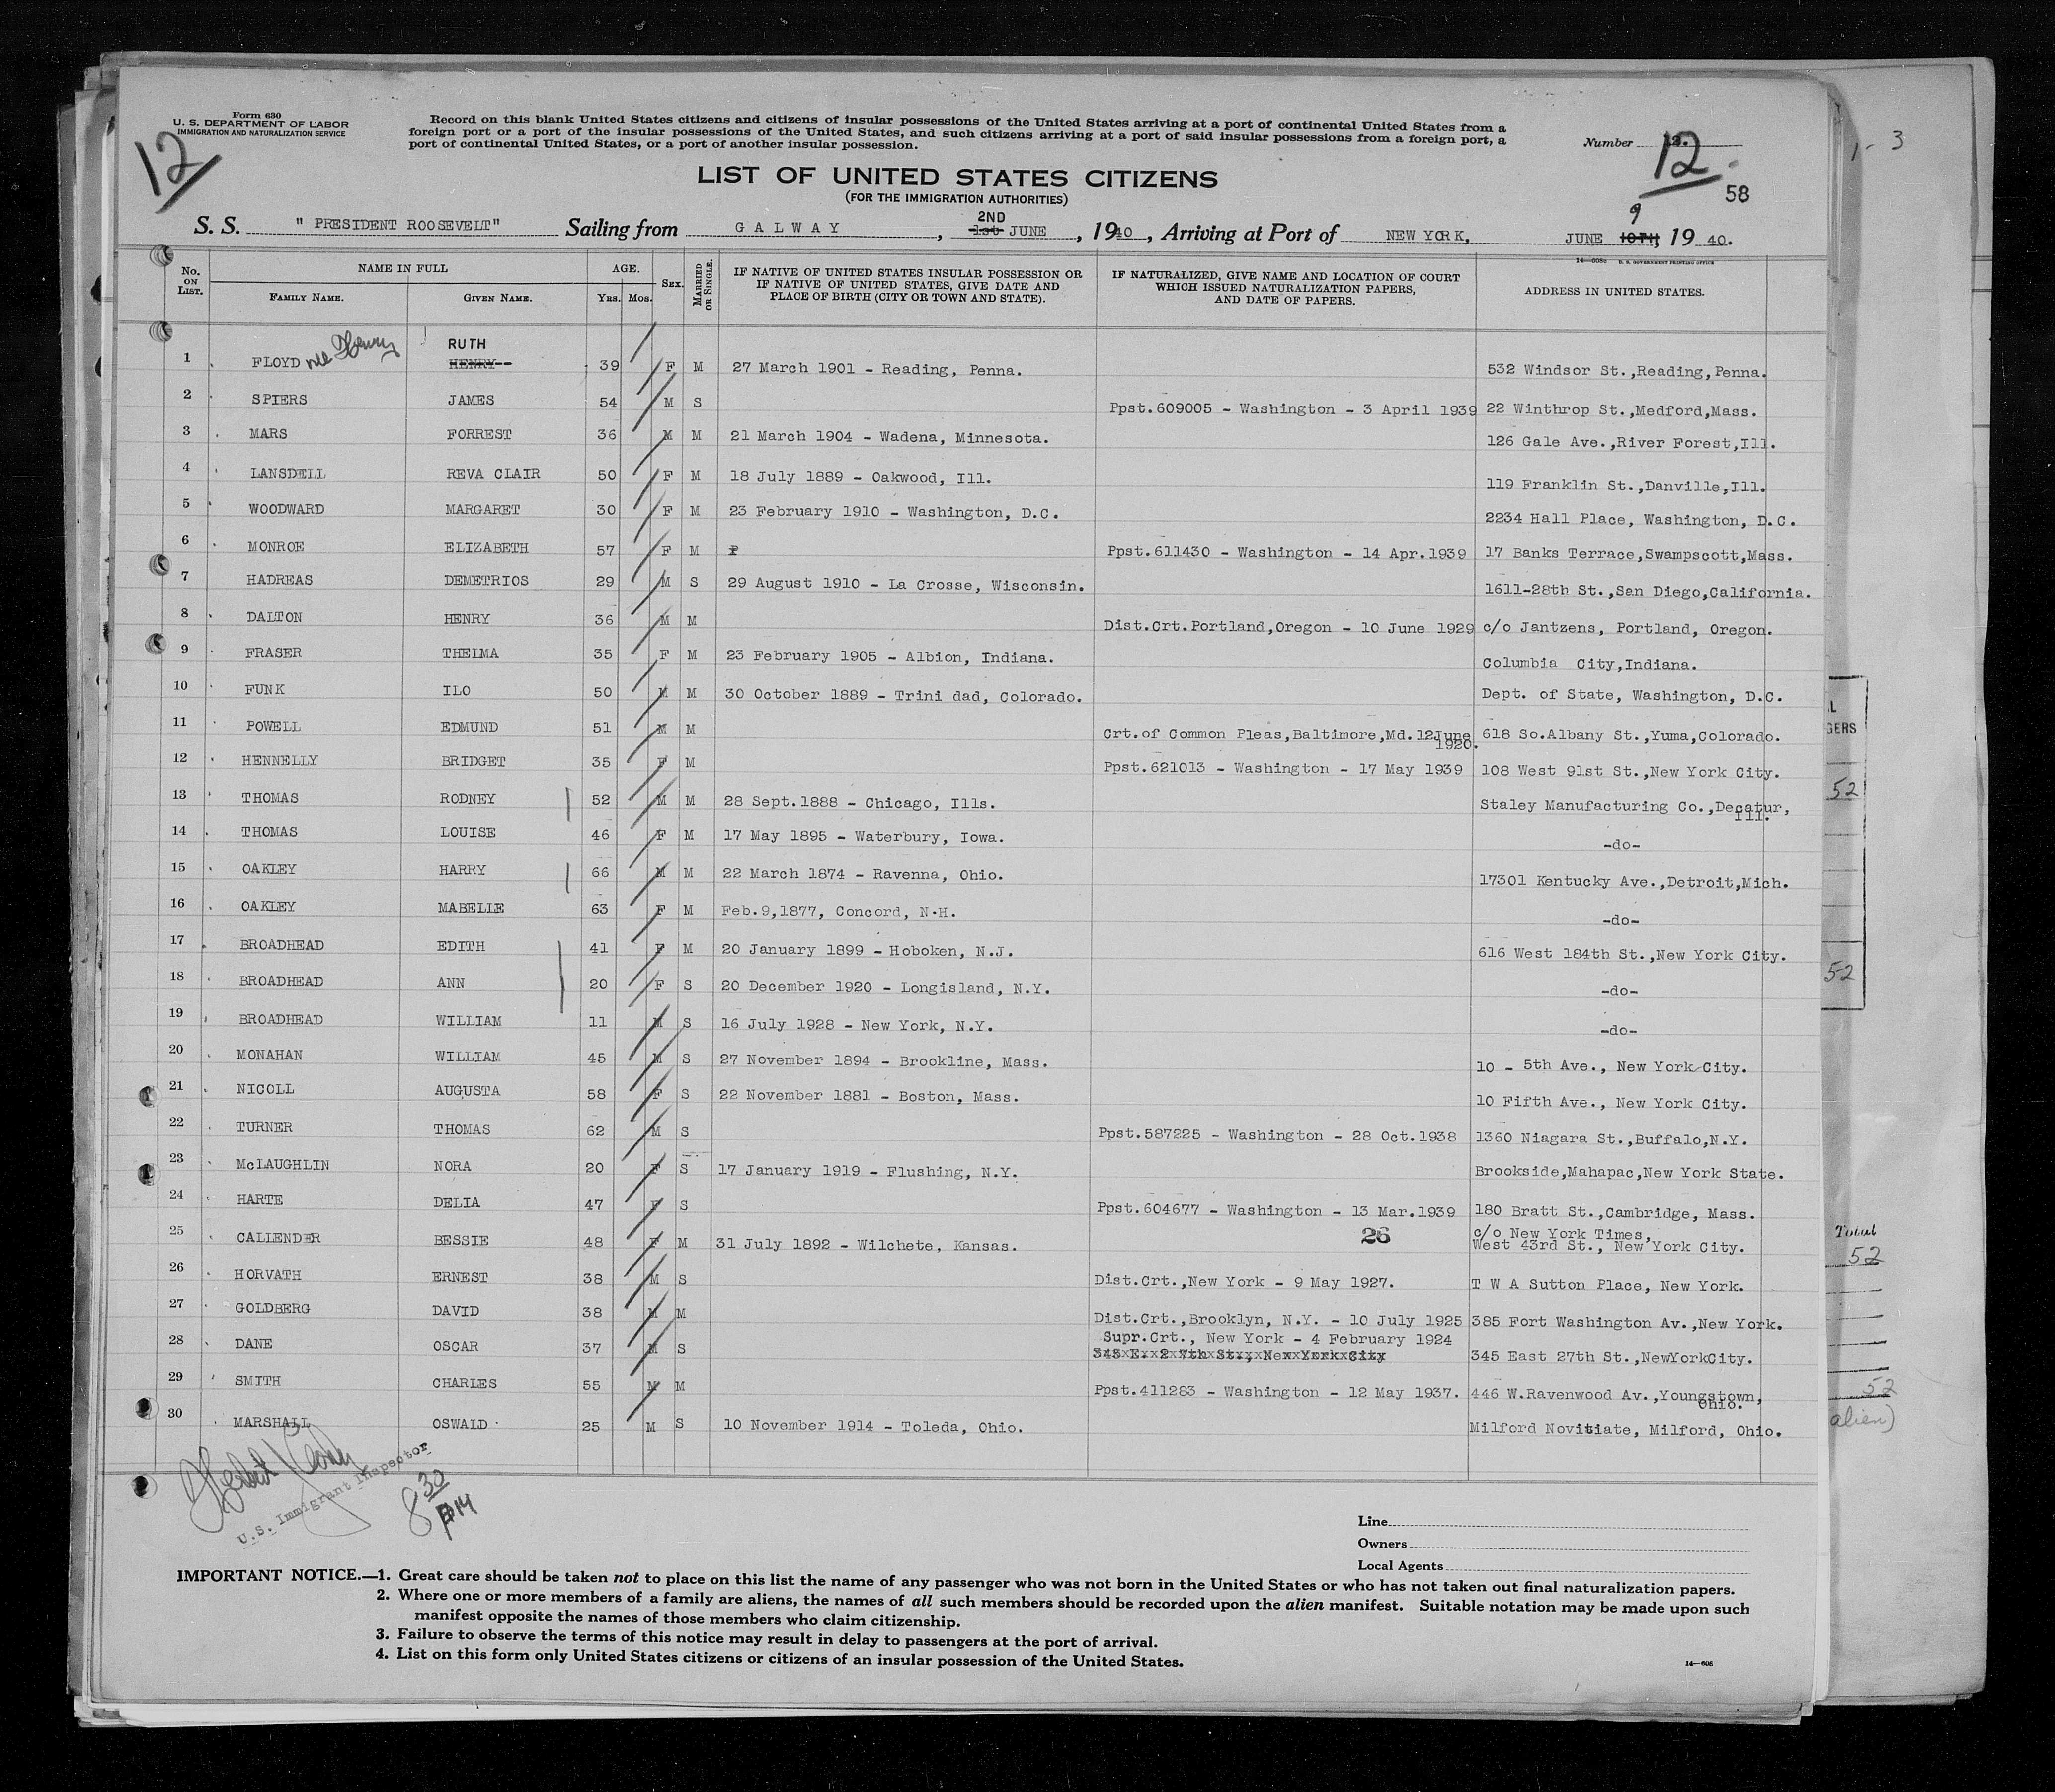 Form 630
U. S. DEPARTMENT OF LABOR
IMMIGRATION AND NATURALIZATION SERVICE
Record on this blank United States citizens and citizens of insular possessions of the United States arriving at a port of continental United States from a
foreign port or a port of the insular possessions of the United States, and such citizens arriving at a port of said insular possessions from a foreign port, a
port of continental United States, or a port of another insular possession.
Number 12
12
58
1 - 3
LIST OF UNITED STATES CITIZENS
(FOR THE IMMIGRATION AUTHORITIES)
2ND 9
S. S. "PRESIDENT ROOSEVELT" Sailing from GALWAY, 1st JUNE, 1940, Arriving at Port of NEW YORK, JUNE 10TH 1940.
14—608c U. S. GOVERNMENT PRINTING OFFICE
No. ON LIST. NAME IN FULL FAMILY NAME. GIVEN NAME. AGE. YRS. MOS. SEX. MARRIED OR SINGLE. IF NATIVE OF UNITED STATES INSULAR POSSESSION OR IF NATIVE OF UNITED STATES, GIVE DATE AND PLACE OF BIRTH (CITY OR TOWN AND STATE). IF NATURALIZED, GIVE NAME AND LOCATION OF COURT WHICH ISSUED NATURALIZATION PAPERS, AND DATE OF PAPERS. ADDRESS IN UNITED STATES.
RUTH
1 FLOYD nee Henry HENRY-- 39 F M 27 March 1901 - Reading, Penna. 532 Windsor St.,Reading,Penna.
2 SPIERS JAMES 54 M S Ppst.609005 - Washington - 3 April 1939 22 Winthrop St.,Medford,Mass.
3 MARS FORREST 36 M M 21 March 1904 - Wadena, Minnesota. 126 Gale Ave.,River Forest,Ill.
4 LANSDELL REVA CLAIR 50 F M 18 July 1889 - Oakwood, Ill. 119 Franklin St.,Danville,Ill.
5 WOODWARD MARGARET 30 F M 23 February 1910 - Washington, D.C. 2234 Hall Place, Washington, D.C.
6 MONROE ELIZABETH 57 F M Ppst.611430 - Washington - 14 Apr.1939 17 Banks Terrace,Swampscott,Mass.
7 HADREAS DEMETRIOS 29 M S 29 August 1910 - La Crosse, Wisconsin. 1611-28th St.,San Diego,California.
8 DALTON HENRY 36 M M Dist.Crt.Portland,Oregon - 10 June 1929 c/o Jantzens, Portland, Oregon.
9 FRASER THELMA 35 F M 23 February 1905 - Albion, Indiana. Columbia City,Indiana.
10 FUNK ILO 50 M M 30 October 1889 - Trini dad, Colorado. Dept. of State, Washington, D.C.
11 POWELL EDMUND 51 M M Crt.of Common Pleas,Baltimore,Md.12June 1920. 618 So.Albany St.,Yuma,Colorado.
12 HENNELLY BRIDGET 35 F M Ppst.621013 - Washington - 17 May 1939 108 West 91st St.,New York City.
13 THOMAS RODNEY 52 M M 28 Sept.1888 - Chicago, Ills. Staley Manufacturing Co.,Decatur, Ill.
14 THOMAS LOUISE 46 F M 17 May 1895 - Waterbury, Iowa. -do-
15 OAKLEY HARRY 66 M M 22 March 1874 - Ravenna, Ohio. 17301 Kentucky Ave.,Detroit,Mich.
16 OAKLEY MABELLE 63 F M Feb.9,1877, Concord, N.H. -do-
17 BROADHEAD EDITH 41 F M 20 January 1899 - Hoboken, N.J. 616 West 184th St.,New York City.
18 BROADHEAD ANN 20 F S 20 December 1920 - Longisland, N.Y. -do-
19 BROADHEAD WILLIAM 11 M S 16 July 1928 - New York, N.Y. -do-
20 MONAHAN WILLIAM 45 M S 27 November 1894 - Brookline, Mass. 10 - 5th Ave., New York City.
21 NICOLL AUGUSTA 58 F S 22 November 1881 - Boston, Mass. 10 Fifth Ave., New York City.
22 TURNER THOMAS 62 M S Ppst.587225 - Washington - 28 Oct.1938 1360 Niagara St.,Buffalo,N.Y.
23 McLAUGHLIN NORA 20 F S 17 January 1919 - Flushing, N.Y. Brookside,Mahapac,New York State.
24 HARTE DELIA 47 F S Ppst.604677 - Washington - 13 Mar.1939 180 Bratt St.,Cambridge, Mass.
25 CALLENDER BESSIE 48 F M 31 July 1892 - Wilchete, Kansas. 26 c/o New York Times, West 43rd St., New York City.
26 HORVATH ERNEST 38 M S Dist.Crt.,New York - 9 May 1927. T W A Sutton Place, New York.
27 GOLDBERG DAVID 38 M M Dist.Crt.,Brooklyn, N.Y. - 10 July 1925 385 Fort Washington Av.,New York.
28 DANE OSCAR 37 M S Supr.Crt., New York - 4 February 1924 345 East 27th St.,NewYorkCity.
29 SMITH CHARLES 55 M M Ppst.411283 - Washington - 12 May 1937. 446 W.Ravenwood Av.,Youngstown, Ohio.
30 MARSHALL OSWALD 25 M S 10 November 1914 - Toleda, Ohio. Milford Novitiate, Milford, Ohio.
GERS
52
52
Total
52
52
alien)
U.S. Immigrant Inspector
8 30 PM
Line
Owners
Local Agents
IMPORTANT NOTICE.—1. Great care should be taken not to place on this list the name of any passenger who was not born in the United States or who has not taken out final naturalization papers.
2. Where one or more members of a family are aliens, the names of all such members should be recorded upon the alien manifest. Suitable notation may be made upon such
manifest opposite the names of those members who claim citizenship.
3. Failure to observe the terms of this notice may result in delay to passengers at the port of arrival.
4. List on this form only United States citizens or citizens of an insular possession of the United States.
14—608